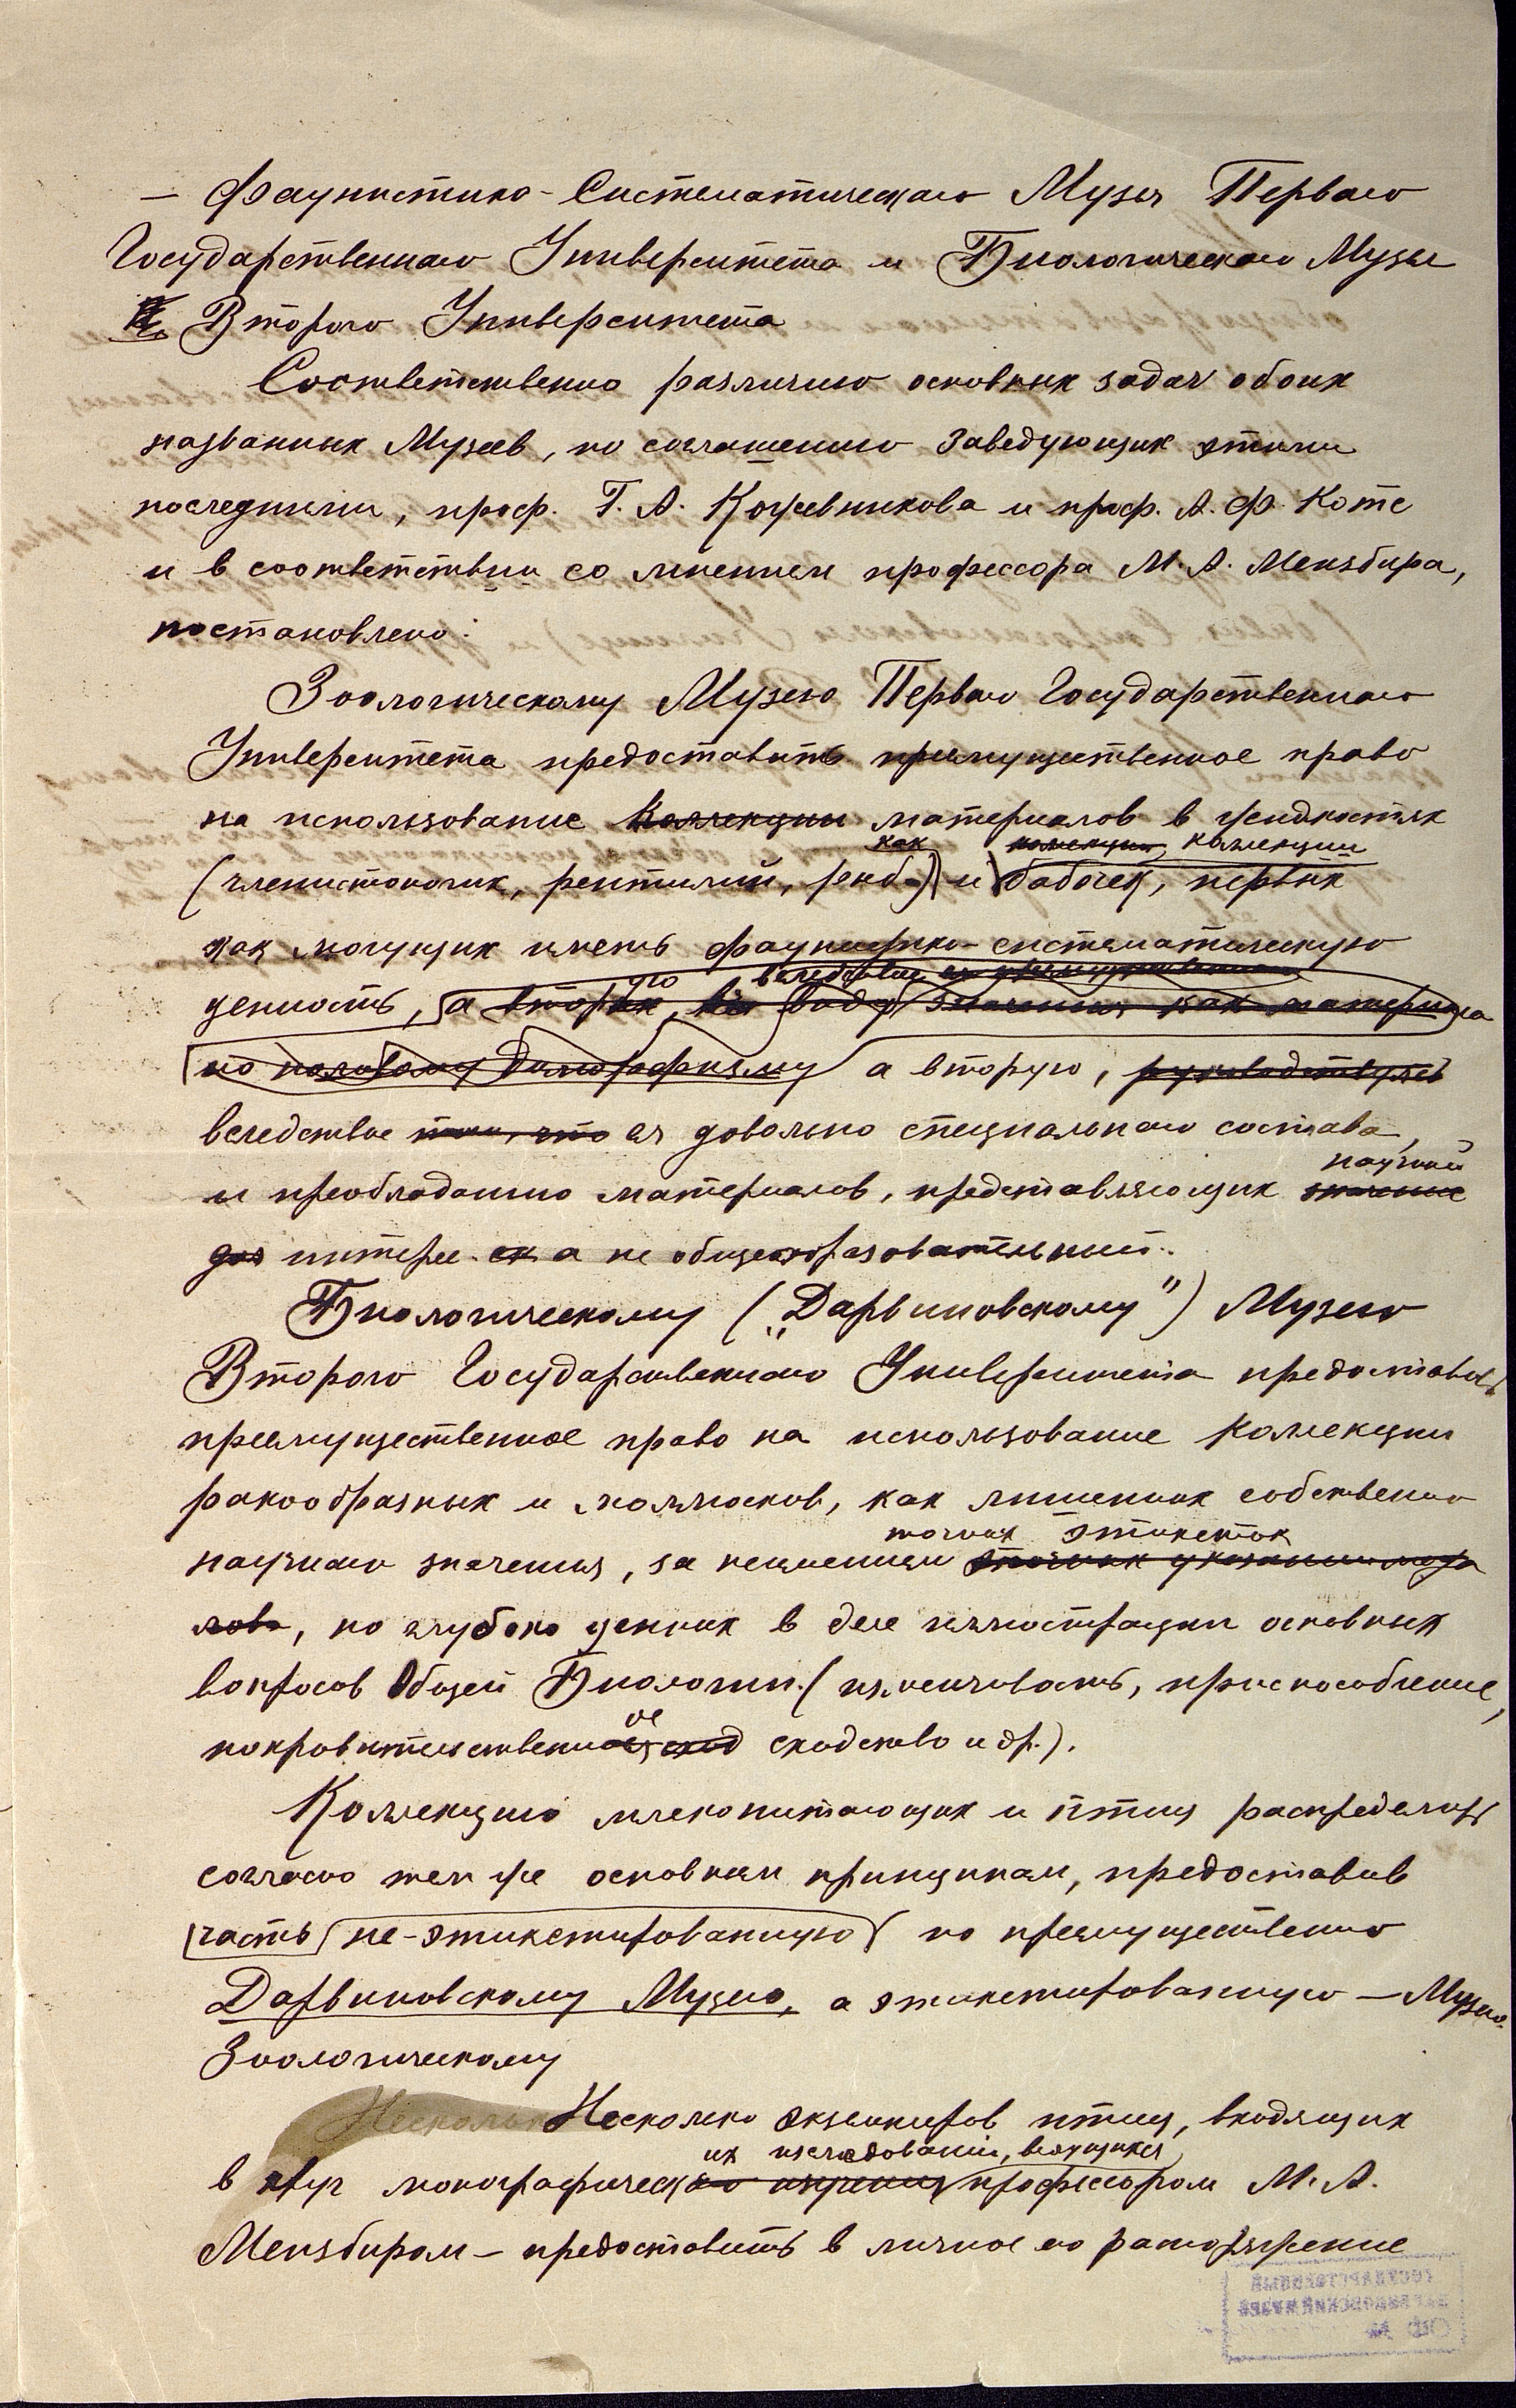 — Фаунистико-Систематическаго Музея Перваго
Государственнаго Университета и Биологическаго Музея
Второго Университета
Соответственно различию основных задач обоих
названных Музеев, по соглашению Заведующих этими
последними, проф. Г. А. Кожевникова и проф. А. Ф. Котс
и в соответствии со мнением профессора М. А. Мензбира,
постановлено:
Зоологическому Музею Перваго Государственнаго
Университета предоставить преимущественное право
на использование коллекции материалов в жидкостях
как коллекции коллекции
(членистоногих, рептилий, рыб) и бабочек, первых
как могущих иметь фаунистико-систематическую
вследствие ея преимущественно
ценность, а вторую ввиду значения как материала
по половому диморфизму а вторую, руководствуясь
вследствие того, что ея довольно специальнаго состава,
научный
и преобладанию материалов, представляющих значение
для интерес а не общеобразовательный.
Биологическому („Дарвиновскому") Музею
Второго Государственнаго Университета предоставить
преимущественное право на использование Коллекции
ракообразных и моллюсков, как лишенных собственно
точных этикеток
научнаго значения, за неимением точных указаний
, но глубоко ценных в деле иллюстрации основных
вопросов Общей Биологии (изменчивость, приспособление,
ое
покровительственное сход сходство и др.).
Коллекцию млекопитающих и птиц распределить
согласно тем же основным принципам, предоставив
часть не-этикетированную по преимуществено
Дарвиновскому Музею, а этикетированную — Музею
Зоологическому
Несколько Несколько экземпляров птиц, входящих
их изследований, ведущихся
в круг монографическаго изучения профессором М. А.
Мензбиром — предоставить в личное его распоряжение
ГОСУДАРСТВЕННЫЙ
ДАРВИНОВСКИЙ МУЗЕЙ
ОФ №